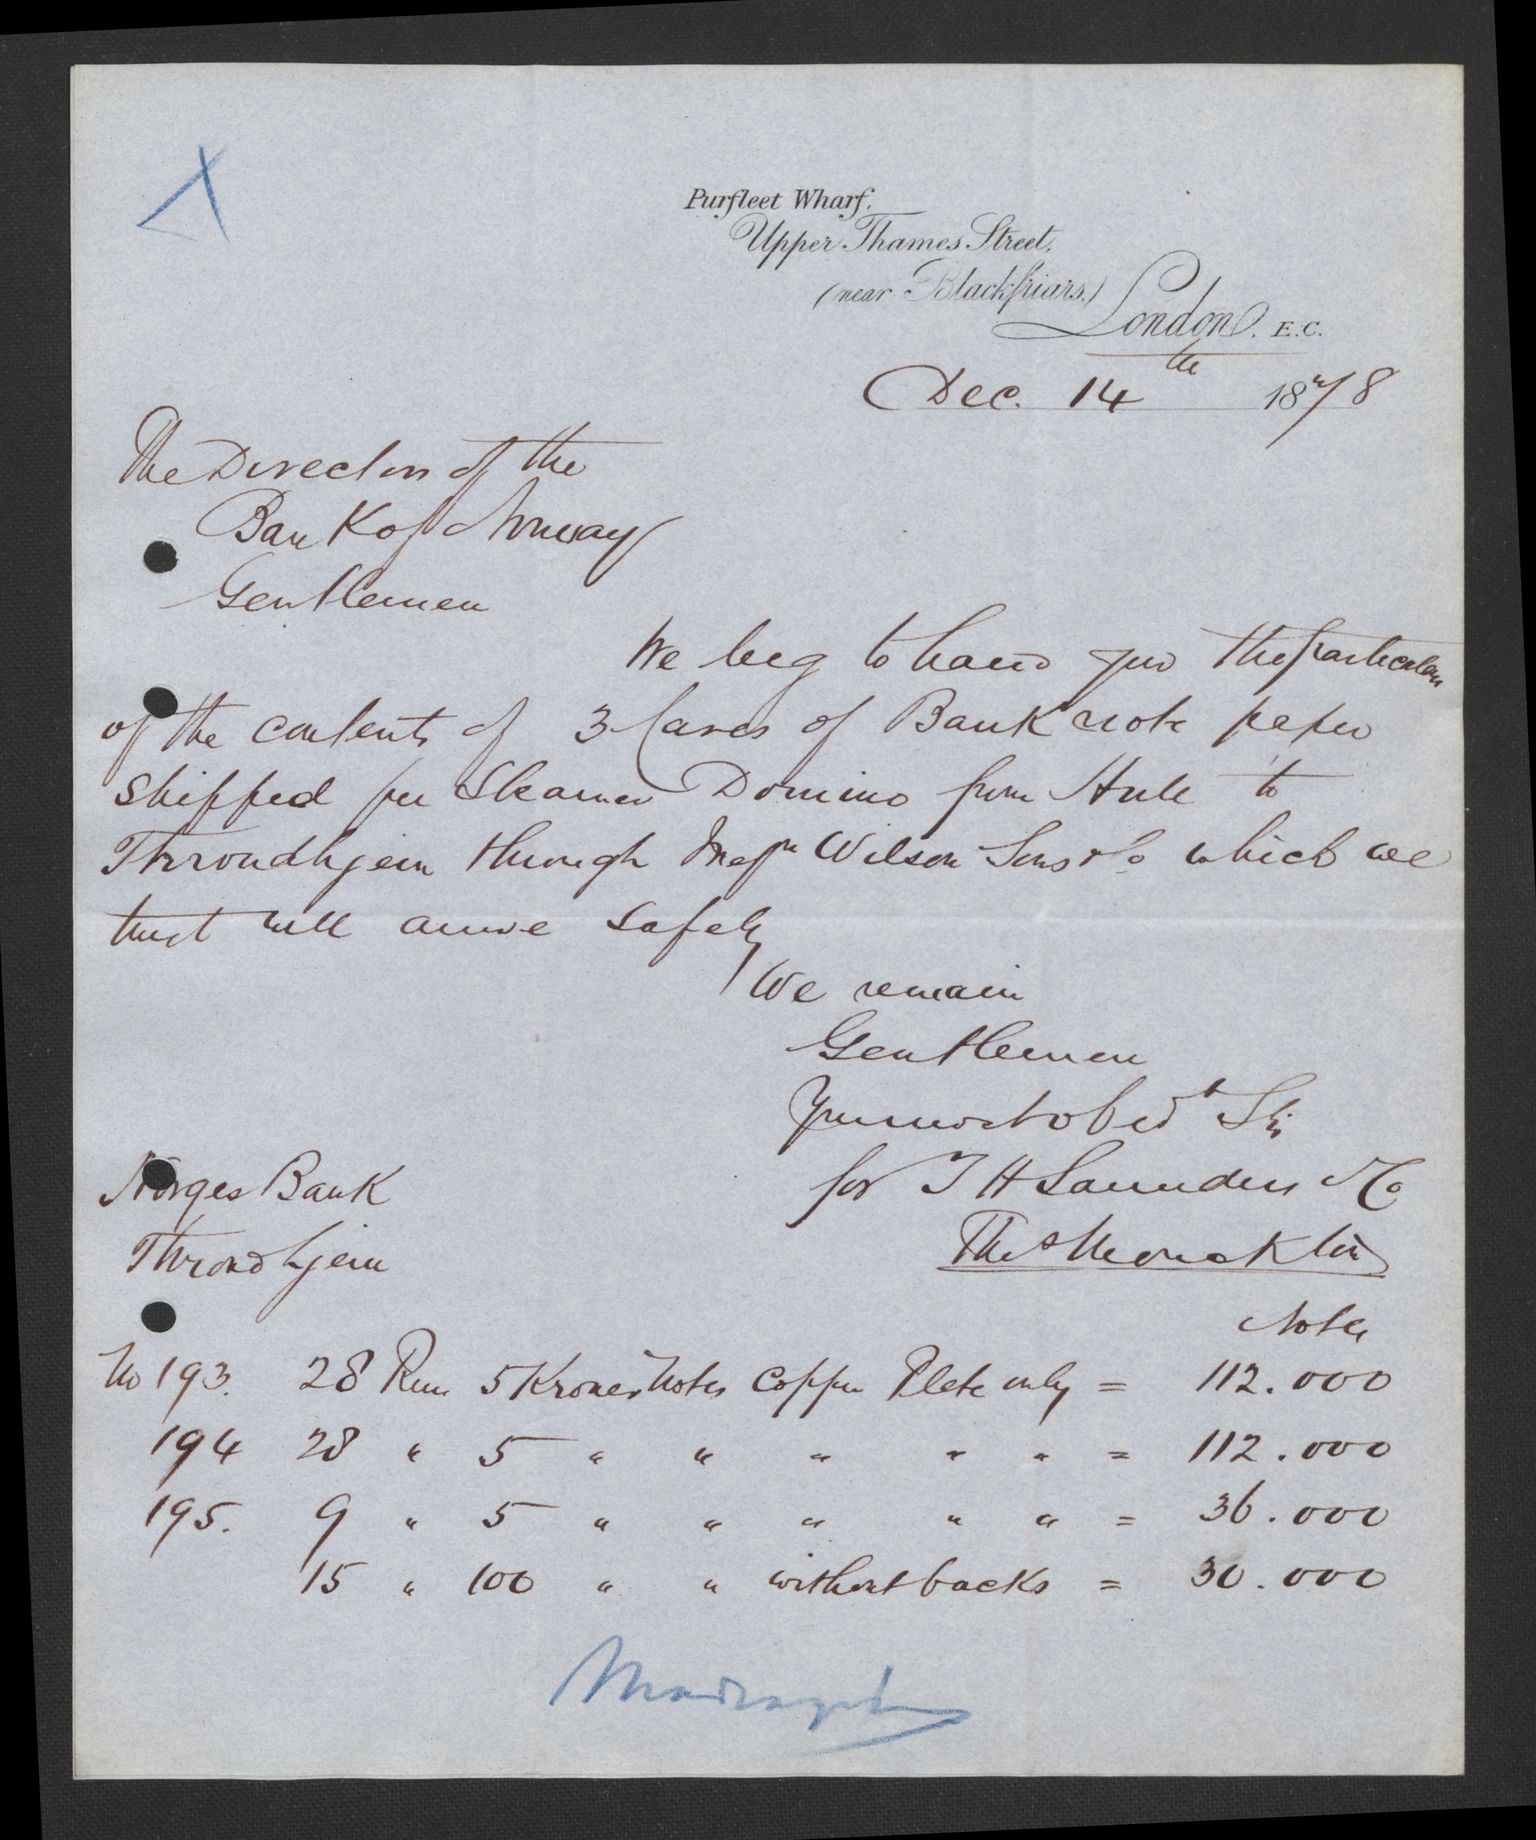 Purfleet Wharf,
Upper Thames Street,
(near Blackfriars,)
London. E.C.
Dec. 14th 1878
The Directors of the
Bank of Norway
Gentlemen
We beg to hand you the particulars
of the contents of 3 Cases of Bank note paper
shipped per Steamer Domino from Hull to
Throndhjem through Messrs Wilson Sons & Co which we
trust will arrive safely
We remain
Gentlemen
Your most obedt Svts
for T H Saunders & Co
Thos Monckton
Norges Bank
Throndhjem
Notes
No 193. 28 Rms 5 Kroner Notes Copper Plate only = 112.000
194 28 " 5 " " " " " = 112.000
195. 9 " 5 " " " " " = 36.000
15 " 100 " " without backs = 30.000